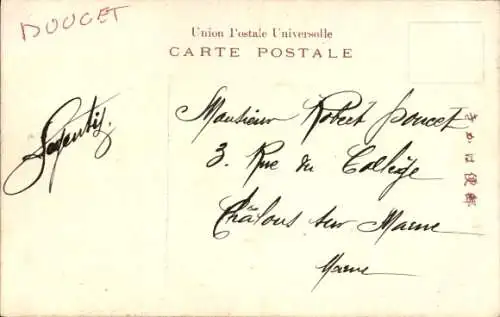 DOUCET
Union Postale Universelle
CARTE POSTALE
Monsieur Robert Doucet
3. Rue du Collège
Châlons sur Marne
Marne
きかは便郵